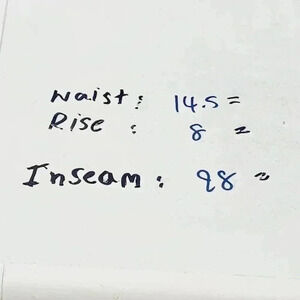 Waist: 14.5 =
Rise : 8 =
Inseam: 28 =